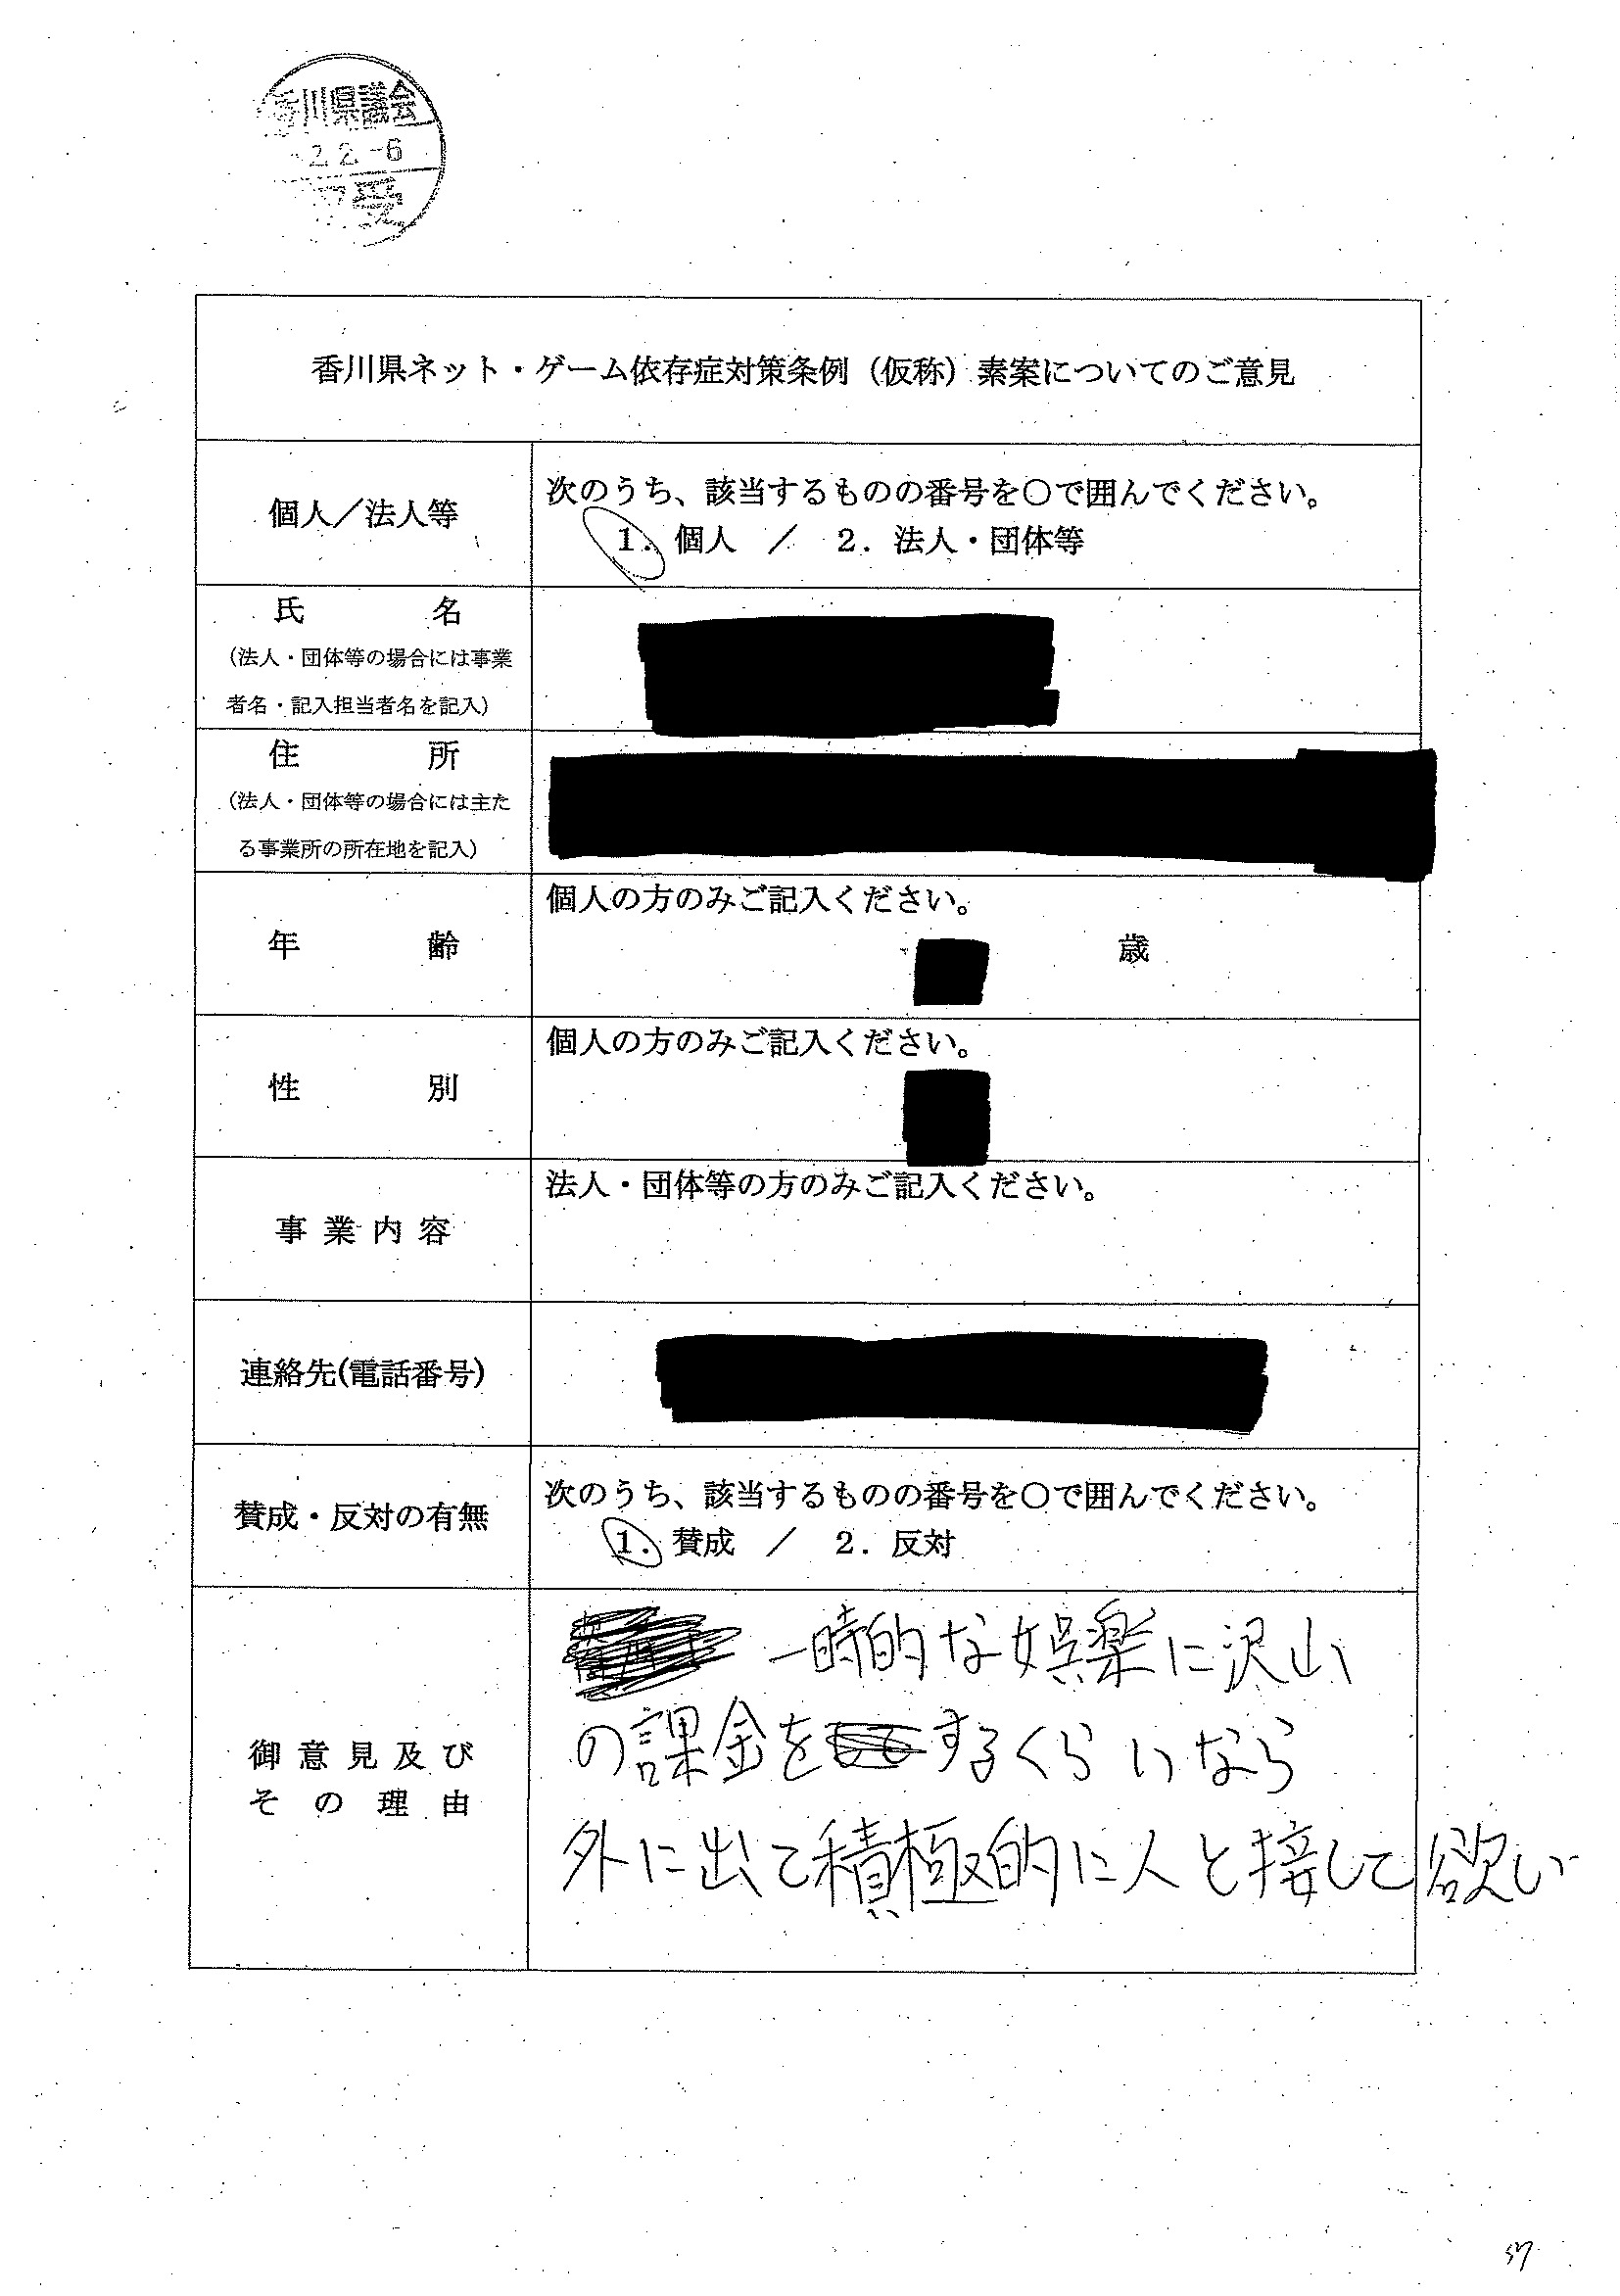 香川県議会
2.2.-6
受
香川県ネット・ゲーム依存症対策条例（仮称）素案についてのご意見
個人／法人等
次のうち、該当するものの番号を○で囲んでください。
1．個人　／　2．法人・団体等
氏名
（法人・団体等の場合には事業
者名・記入担当者名を記入）
住所
（法人・団体等の場合には主た
る事業所の所在地を記入）
年齢
個人の方のみご記入ください。
歳
性別
個人の方のみご記入ください。
事業内容
法人・団体等の方のみご記入ください。
連絡先(電話番号)
賛成・反対の有無
次のうち、該当するものの番号を○で囲んでください。
1．賛成　／　2．反対
御意見及び
その理由
一時的な娯楽に沢山
の課金をするくらいなら
外に出て積極的に人と接して欲しい
57